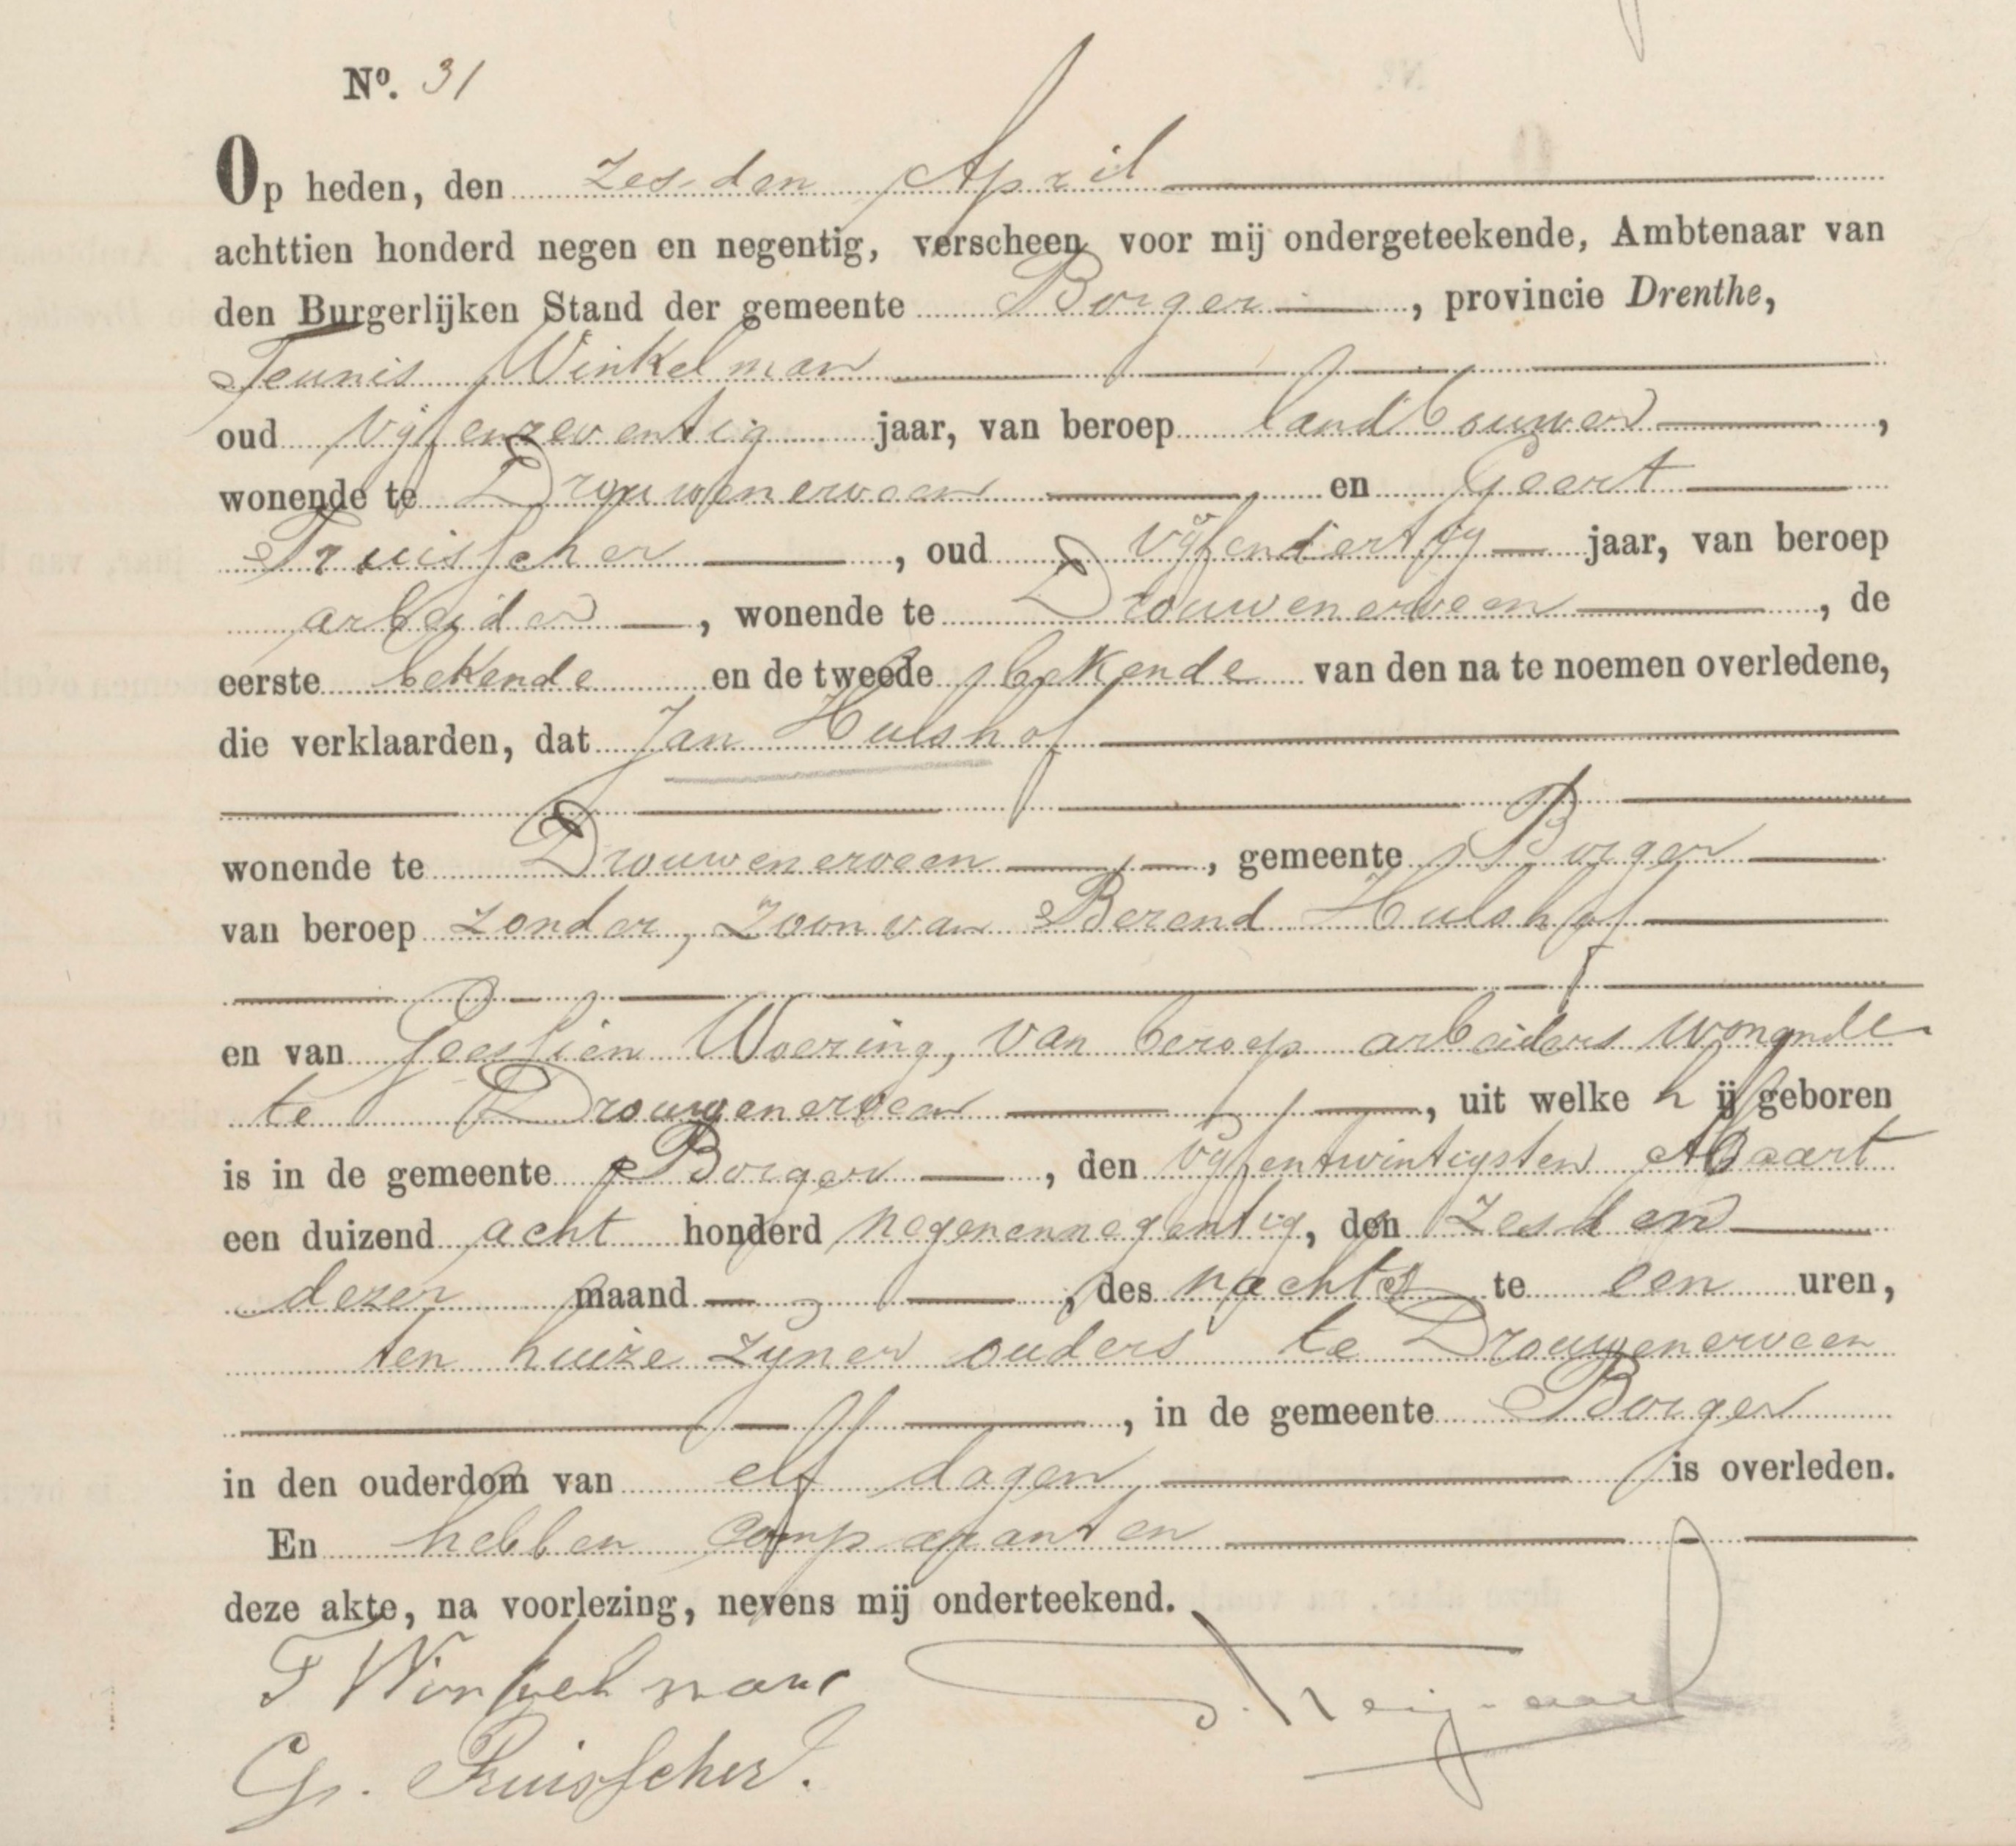 Nº. 31
Op heden, den zesden April
achttien honderd negen en negentig, verscheen voor mij ondergeteekende, Ambtenaar van
den Burgerlijken Stand der gemeente Borger, provincie Drenthe,
Teunis Winkelman
oud vijfenzeventig jaar, van beroep landbouwer,
wonende te Drouwenerveen en Geert
Truisscher, oud vijfendertig jaar, van beroep
arbeider, wonende te Drouwenerveen, de
eerste bekende en de tweede bekende van den na te noemen overledene,
die verklaarden, dat Jan Hulshof
wonende te Drouwenerveen, gemeente Borger
van beroep zonder, zoon van Berend Hulshof
en van Geessien Woering, van beroep arbeiders wonende
te Drouwenerveen, uit welke hij geboren
is in de gemeente Borger, den vijfentwintigsten Maart
een duizend acht honderd negenennegentig, den zesden
dezer maand, des nachts te een uren,
ten huize zijner ouders te Drouwenerveen
, in de gemeente Borger
in den ouderdom van elf dagen is overleden.
En hebben comparanten
deze akte, na voorlezing, nevens mij onderteekend.
T Winkelman
G. Truisscher.